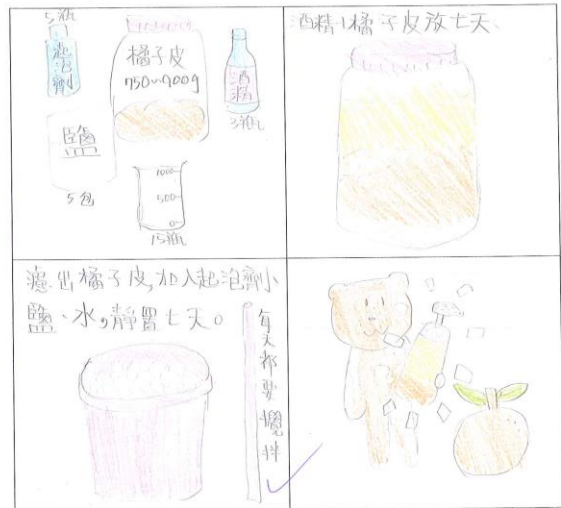 5瓶
起泡劑
橘子皮
750~900g
酒精
3瓶
鹽
5包
1000
500
0
15瓶
酒精、橘子皮放七天、
濾出橘子皮,加入起泡劑、
鹽、水,靜置七天。
每天都要攪拌